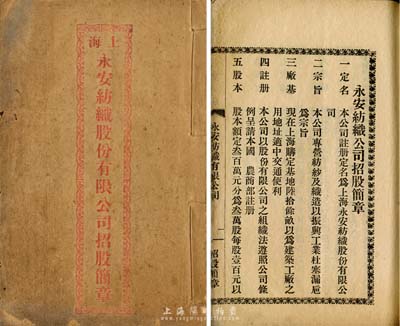 上海
永安紡織股份有限公司招股簡章
永安紡織公司招股簡章
一定名 本公司註册定名爲上海永安紡織股份有限公
司
二宗旨 本公司專營紡紗及織造以振興工業杜塞漏巵
爲宗旨
三廠基 現在上海購定基地陸拾餘畝以爲建築工廠之
用地址適中交通便利
四註册 本公司以股份有限公司之組織法遵照公司條
例呈請本國 農商部註册
五股本 股本額定叁百萬元分爲叁萬股每股壹百元以
永安紡織有限公司 一 招股簡章
上海陽明拍賣